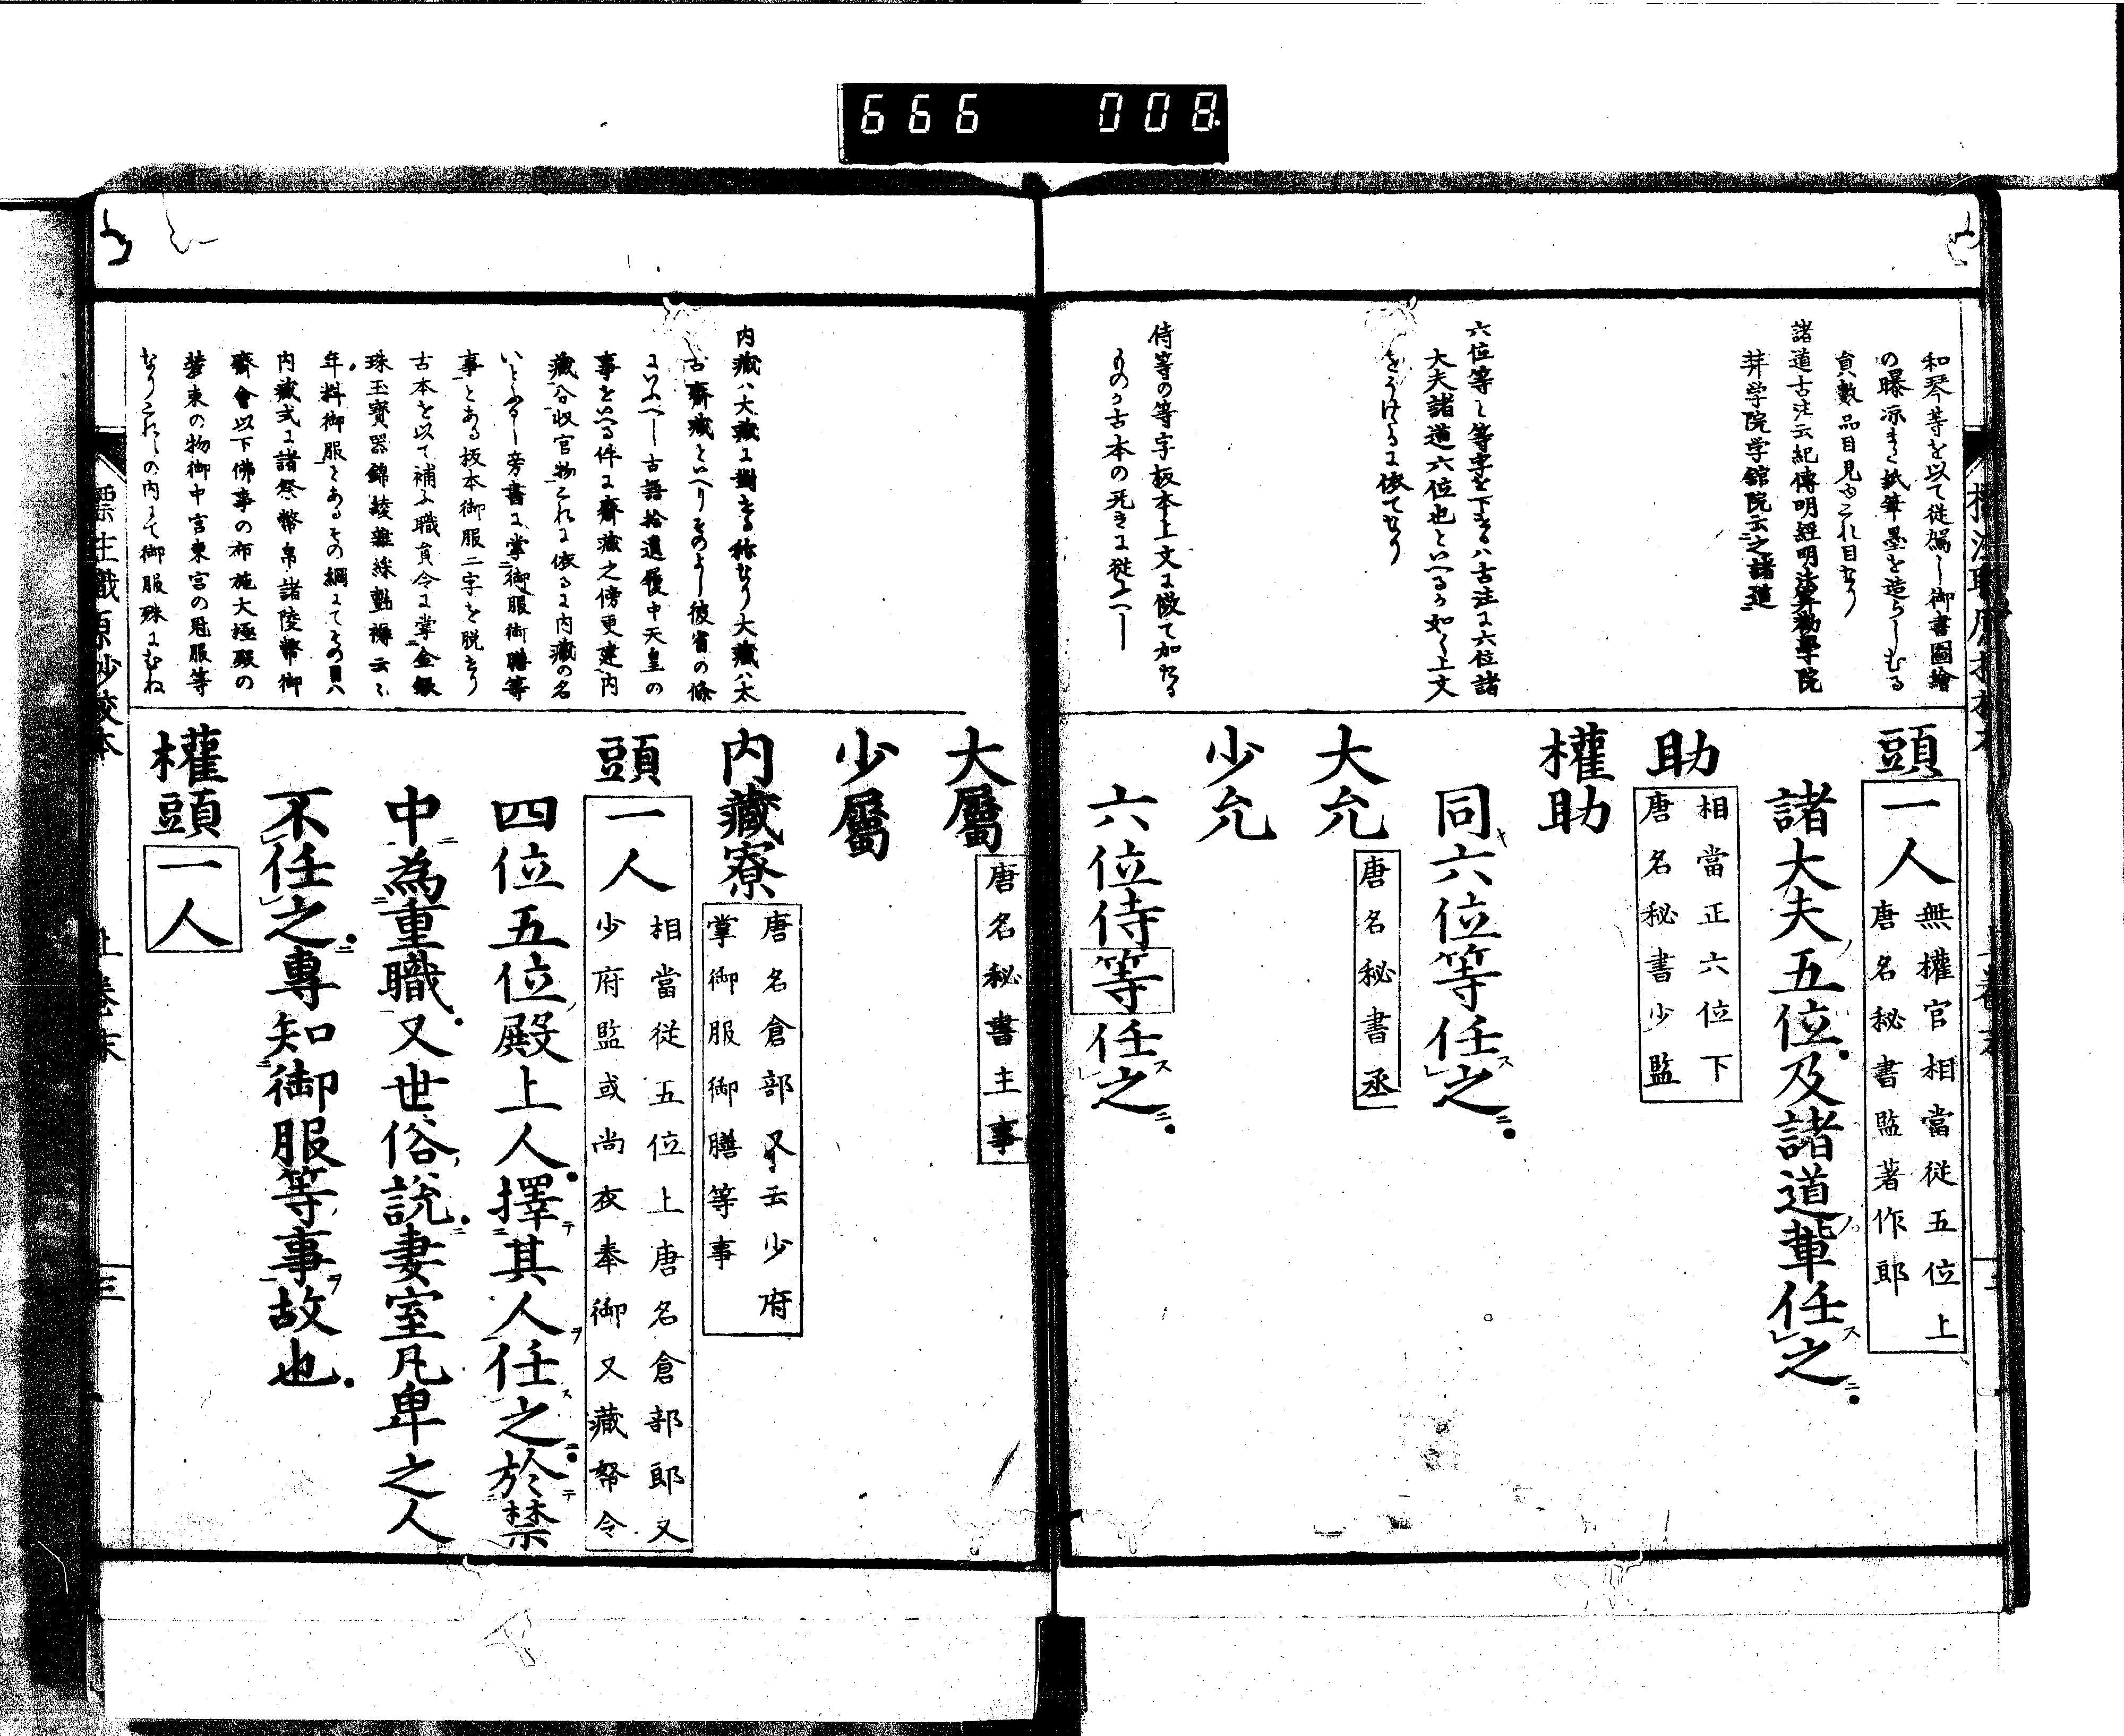 666 008
和琴等を以て従駕し御書圖繪
の曝凉また紙筆墨を造らしむる
員數品目見ゆこれ目なり
諸道古注云紀傳明經明法算勸學院
幷学院学館院云之諸道
六位等ミ等字を下せるハ古注に六位諸
大夫諸道六位也といへるか如く上文
をうけたるに依てなり
侍等の等字板本上文に倣て加たる
ものか古本の无きに従ふへし
頭 一人 無權官相當従五位上
唐名秘書監著作郎
諸大夫ノ五位及諸道ノ輩任ス之ニ
助 相當正六位下
唐名秘書少監
權助
同キ六位等任ス之ニ
大允 唐名秘書丞
少允
六位侍等任ス之ニ
大屬 唐名秘書主事
少屬
内藏寮 唐名倉部又云少府
掌御服御膳等事
頭 一人 相當従五位上唐名倉部郎又
少府監或尚衣奉御又藏幣令
四位五位ノ殿上人擇テ其人ヲ任ス之ニ於テ禁
中ニ為重職又世俗ノ説ニ妻室凡卑之人
不任之ニ專知御服等ノ事ヲ故也
權頭 一人
内藏ハ大藏に對せる称なり大藏ハ太
古齋藏といへりそのよし彼省の條
にいふへし古語拾遺履中天皇の
事をいへる件に齋藏之傍更建内
藏分収官物これに依るに内藏の名
いとふるし旁書に掌御服御膳等
事とある板本御服二字を脱せり
古本を以て補ふ職員令に掌金銀
珠玉寶器錦綾雜綵氈褥云々
年料御服とあるその綱にてその目ハ
内藏式に諸祭幣帛諸陵幣御
齋會以下佛事の布施大極殿の
裝束の物御中宮東宮の冠服等
なりこれらの内にて御服殊にむね
標注職原抄校本 上卷末 三